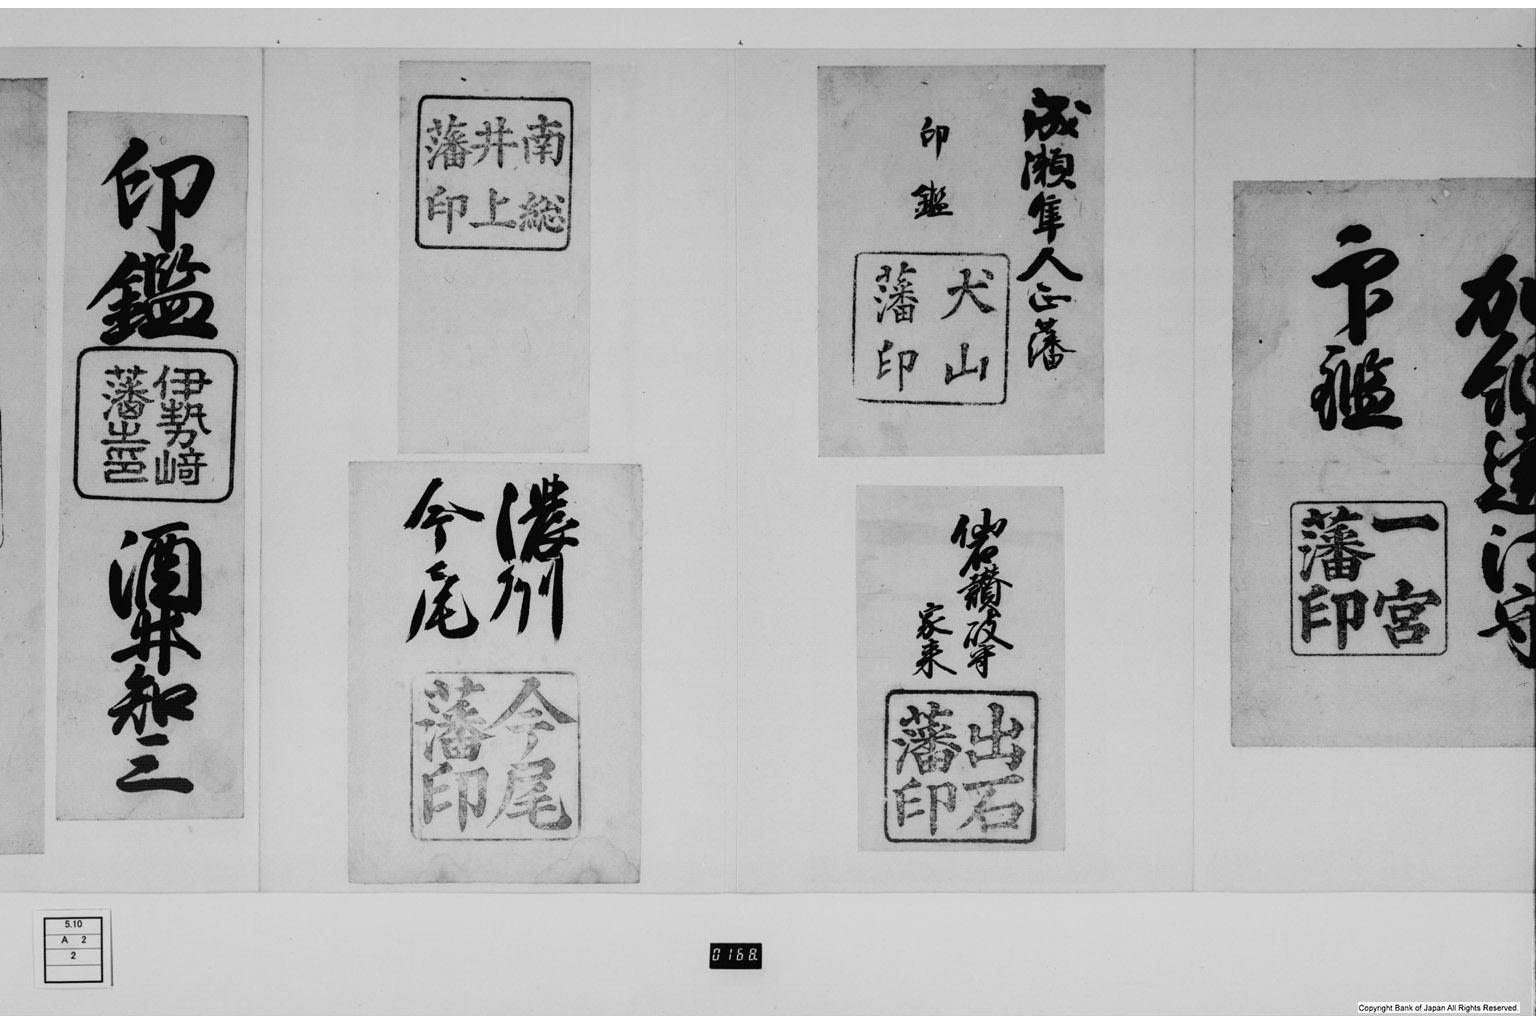 加納遠江守
印鑑
一宮
藩印
成瀬隼人正藩
印鑑
犬山
藩印
仙石讃岐守
家来
出石
藩印
南総
井上
藩印
濃州
今尾
今尾
藩印
印鑑
伊勢崎
藩之印
酒井知三
5.10
A 2
2
0168
Copyright Bank of Japan All Rights Reserved.